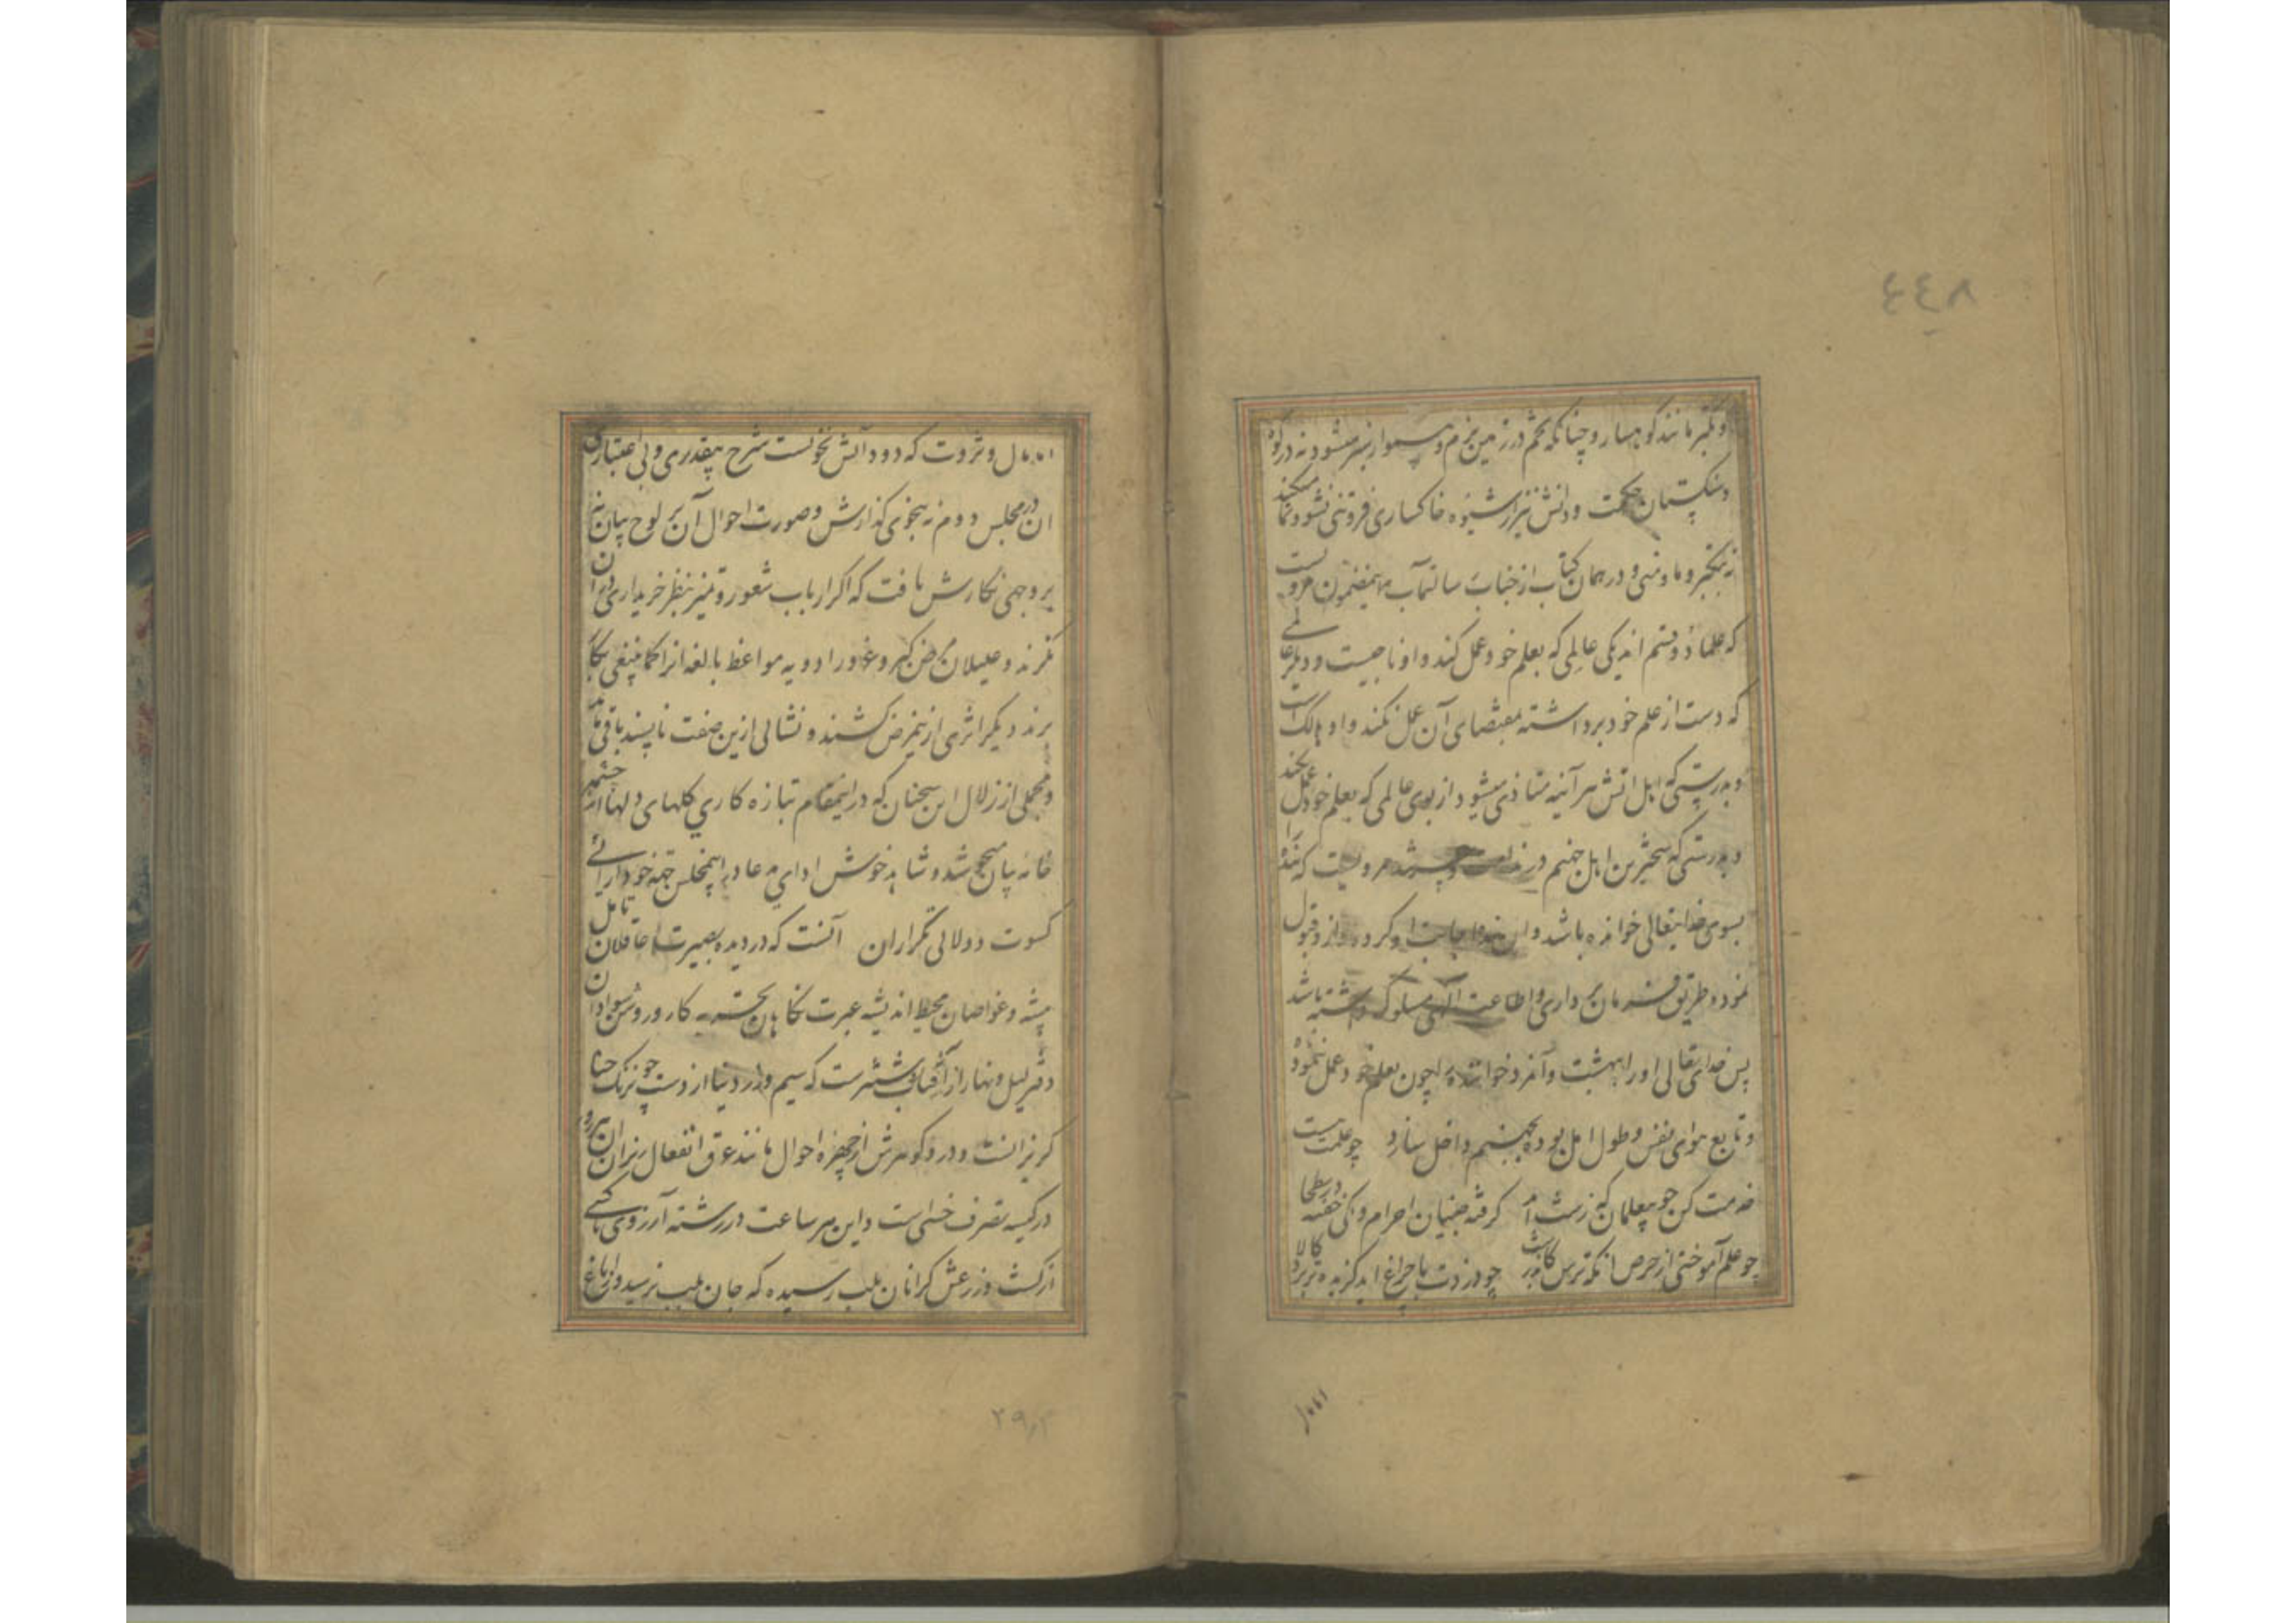 ٤٤٨
و تکبر مانند کوهسار و چنانکه تخم در زمین نرم و هموار سبز میشود نه در کوه
و سنگستان حکمت و دانش نیز از شیوه خاکساری و فروتنی نشو و نما میکند
نه تکبر و ما و منی و در همان کتاب از جناب رسالتمآب بهمضمون مرویست
که علما دو قسم اند یکی عالمی که بعلم خود عمل کند و او ناجیست و دیگر عالمی
که دست از علم خود برداشته بمقتضای آن عمل نکند و او هالک است
و بدرستی که اهل آتش هر آینه متاذی میشود از بوی عالمی که بعلم خود عمل نکند
و بدرستی که سختترین اهل جهنم در ندامت و حسرت مردیست که بنده را
بسوی خدایتعالی خوانده باشد و آن بنده اجابت او کرده و از او قبول
نمود و طریق فرمان برداری و اطاعت الهی مسلوک داشته باشد
پس خدای تعالی او را ببهشت و آنمرد خواننده را چون بعلم خود عمل ننموده
و تابع هوای نفس و طول امل بوده بجهنم داخل سازد چو علمت هست
خدمت کن چو بیعلمان که زشت آید گرفته چینیان احرام و مکی خفته در بطحا
چو علم آموختی از حرص آنگه ترس کاندر شب چو دزدی با چراغ آید گزیده تر برد کالا
اما مال
اما مال و ثروت که دود آتش نخوتست شرح بیقدری و بی اعتباری
آن در مجلس دوم نه بنحوی گذارش و صورت احوال آن بر لوح بیان نه
بر وجهی نگارش یافت که اگر ارباب شعور و تمیز بنظر خریداری در آن
نگرند و علیلان مرض کبر و غرور ادویه مواعظ بالغه انرا کما ینبغی بکار
برند دیگر اثری از ینمرض کشند و نشانی ازین صفت ناپسند باقی ماند
و مجملی از زلال این سخنان که در اینمقام بتازه کاری گلهای دلها از چشمه
خانه بیان سجع شد و شاهد خوش ادای مدعا در اینمجلس جهة خودآرائی
کسوت دو لائی تکرار آن آنست که در دیده بصیرت عاقلان تامل
پیشه و غواصان محیط اندیشه عبرت نگاهان پخته کار و روشن سوادان
دفتر لیل و نهار از آفتاب روشنترست که سیم و زر دنیا از دست چو نرنگ حنا
گریزانست و در و گوهرش از چهره احوال مانند عرق انفعال ریزان آن هر روز
در کیسه تصرف خسی است و این هر ساعت در رشته آرزوی ناکسی
از کشت و زرعش گرانان بلب رسیده که جان بلب نرسید و از باغ